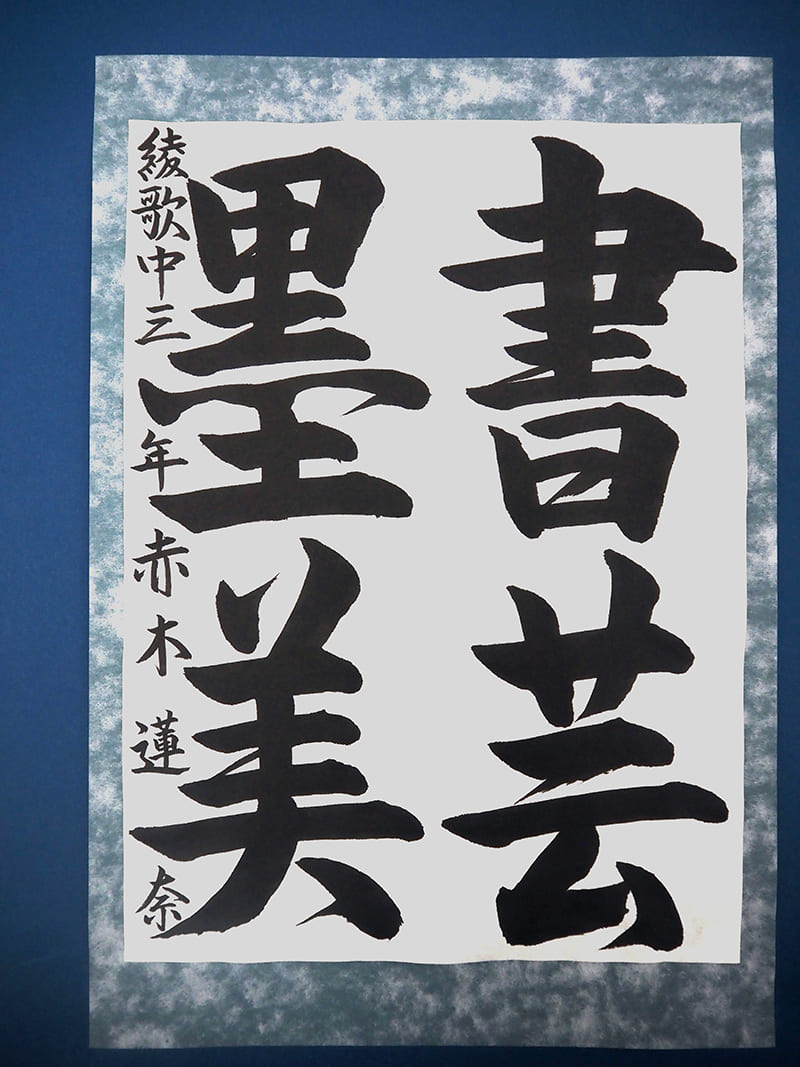 書芸
墨美
綾歌中三年赤木蓮奈